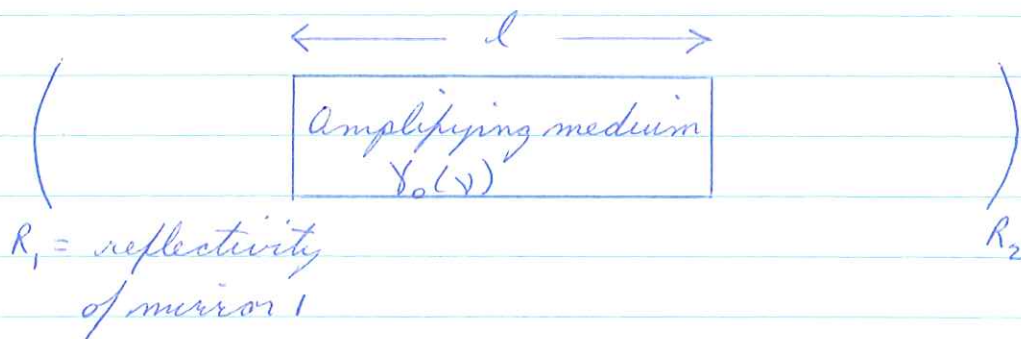 l
Amplifying medium
γ₀(ν)
R₁ = reflectivity
of mirror 1
R₂